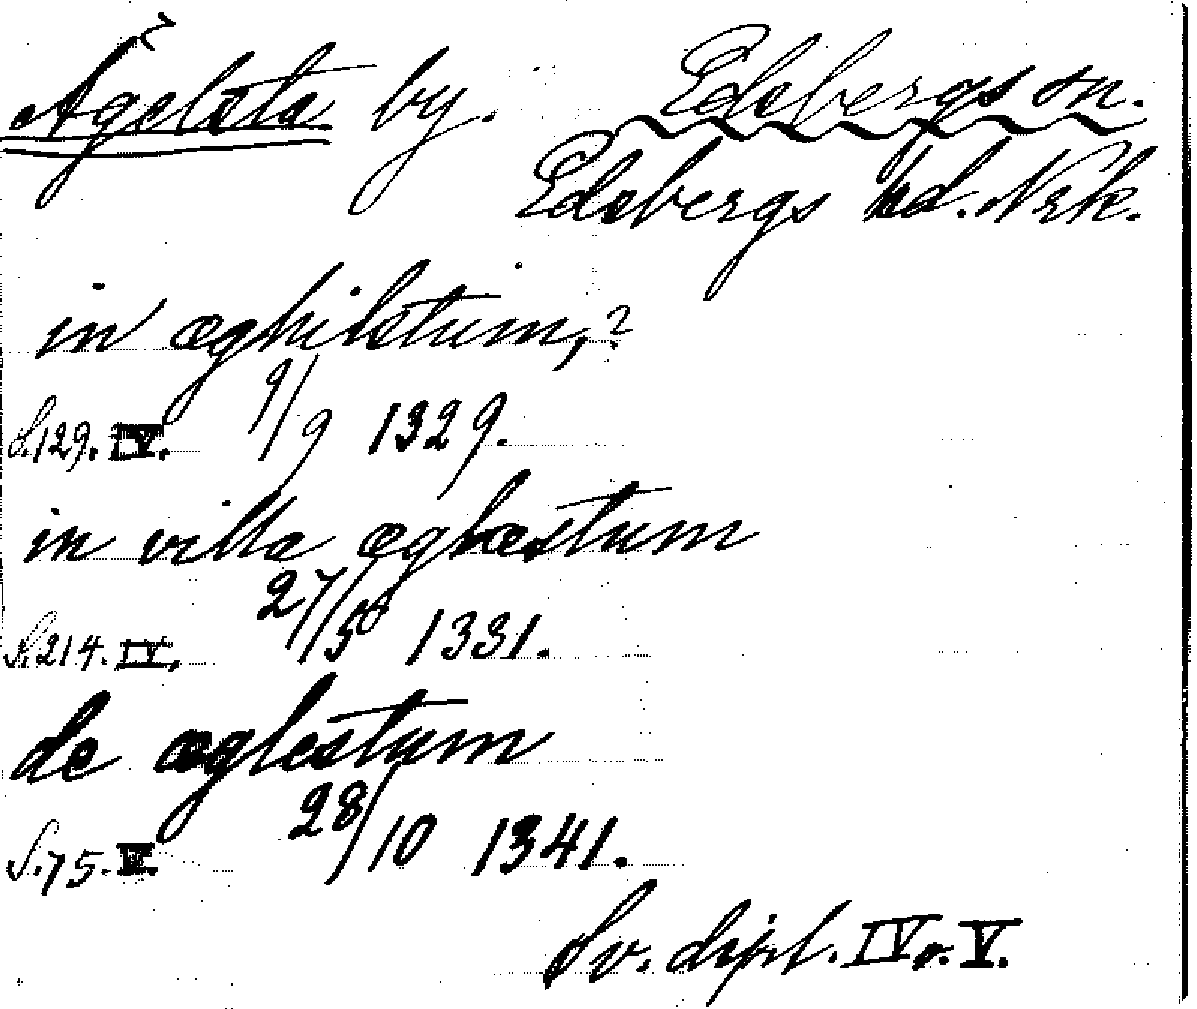 Ägelsta by. Edsbergs sn.
Edsbergs hd. Nrk.
in æghilstum,?
S.129. IV. 9/9 1329.
in villa æghæstum
S.214. IV. 27/5 1331.
de æglestum
S.75. V. 28/10 1341.
Sv. dipl. IV o. V.